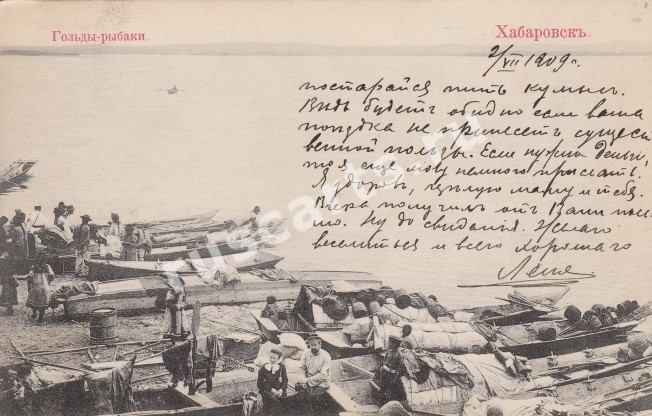 Гольды-рыбаки.
Хабаровскъ.
2/VII 1909 г.
постарайся пить кумыс.
Видь будетъ обидно если ваша
поездка не принесетъ сущест
венной пользы. Если нужны деньги,
то я еще могу немного прислать.
Я здоровъ, целую маму и тебя.
Вчера получилъ отъ Вани пись
мо. Ну до свидания. Желаю
веселиться и всего хорошаго
Леня
ruscards.ru